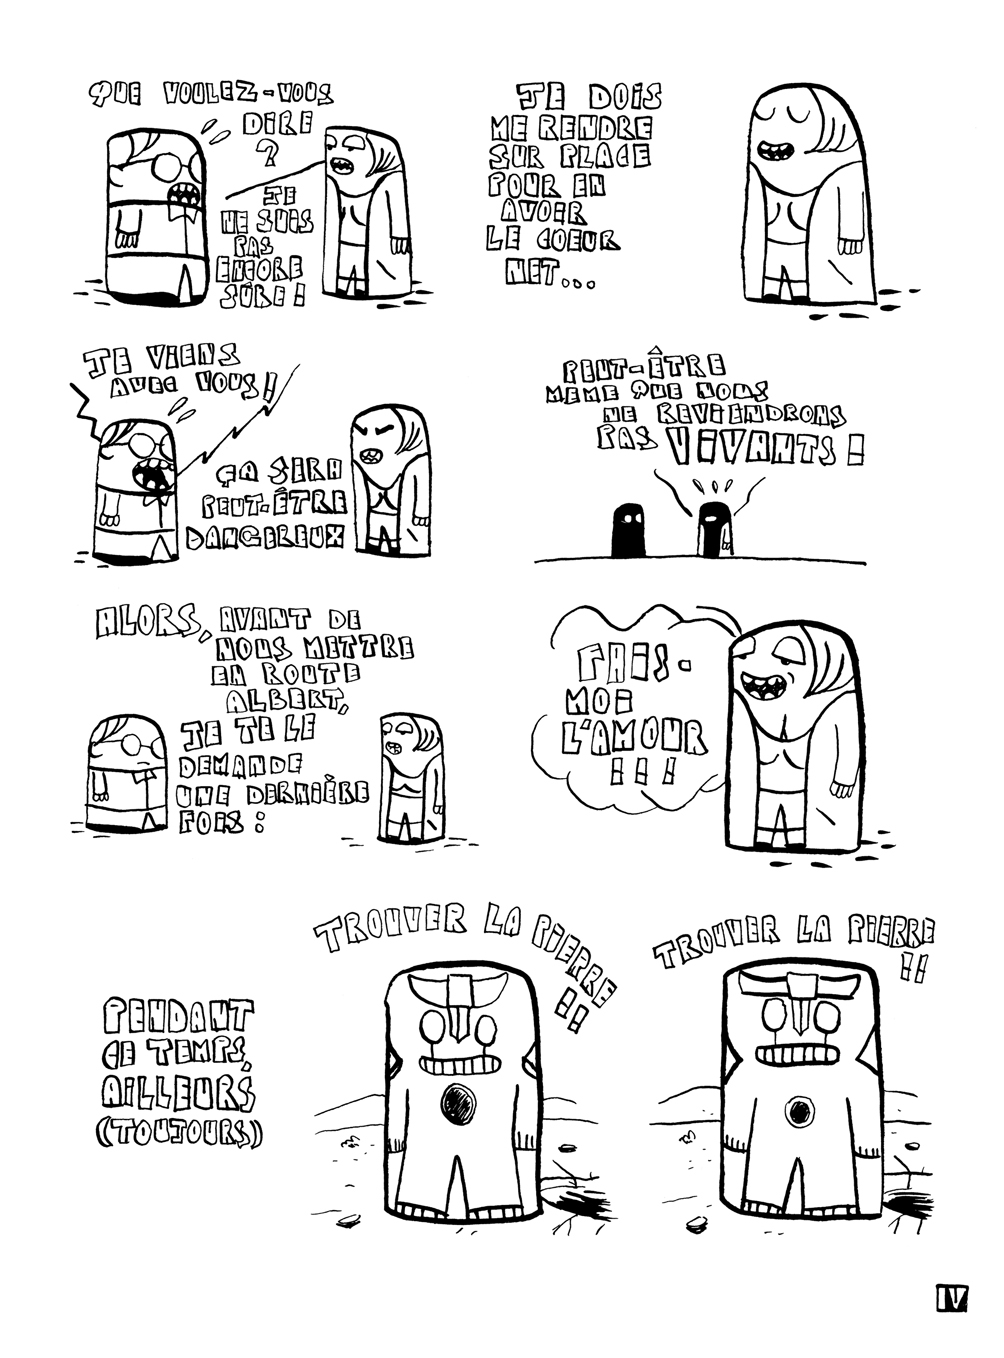 QUE VOULEZ-VOUS
DIRE
?
JE
NE SUIS
PAS
ENCORE
SÛRE!
JE DOIS
ME RENDRE
SUR PLACE
POUR EN
AVOIR
LE COEUR
NET...
JE VIENS
AVEC VOUS!
ÇA SERA
PEUT-ÊTRE
DANGEREUX
PEUT-ÊTRE
MEME QUE NOUS
NE REVIENDRONS
PAS VIVANTS!
ALORS, AVANT DE
NOUS METTRE
EN ROUTE
ALBERT,
JE TE LE
DEMANDE
UNE DERNIÈRE
FOIS:
FAIS-
MOI
L'AMOUR
!!!
PENDANT
CE TEMPS,
AILLEURS
(TOUJOURS)
TROUVER LA PIERRE
!!
TROUVER LA PIERRE
!!
IV